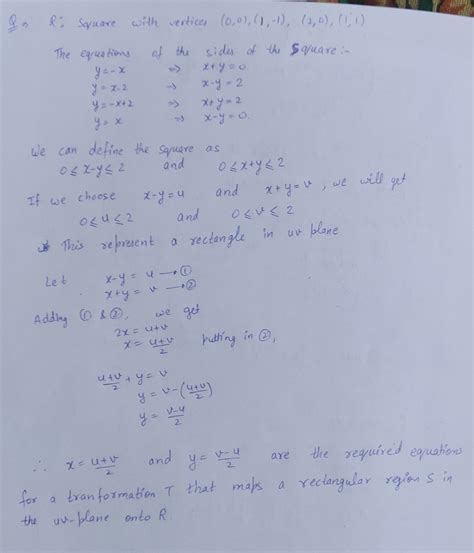 Q. R: Square with vertices (0,0), (1,-1), (2,0), (1,1)
The equations of the sides of the Square :-
y=-x ⇒ x+y=0
y=x-2 ⇒ x-y=2
y=-x+2 ⇒ x+y=2
y=x ⇒ x-y=0.
We can define the square as
0≤x-y≤2 and 0≤x+y≤2
If we choose x-y=u and x+y=v, we will get
0≤u≤2 and 0≤v≤2
* This represent a rectangle in uv plane
Let x-y = u → ①
x+y = v → ②
Adding ① & ②, we get
2x = u+v
x = (u+v)/2 putting in ②,
(u+v)/2 + y = v
y = v-(u+v)/2
y = (v-u)/2
∴ x = (u+v)/2 and y = (v-u)/2 are the required equations
for a tranformation T that maps a rectangular region S in
the uv-plane onto R.